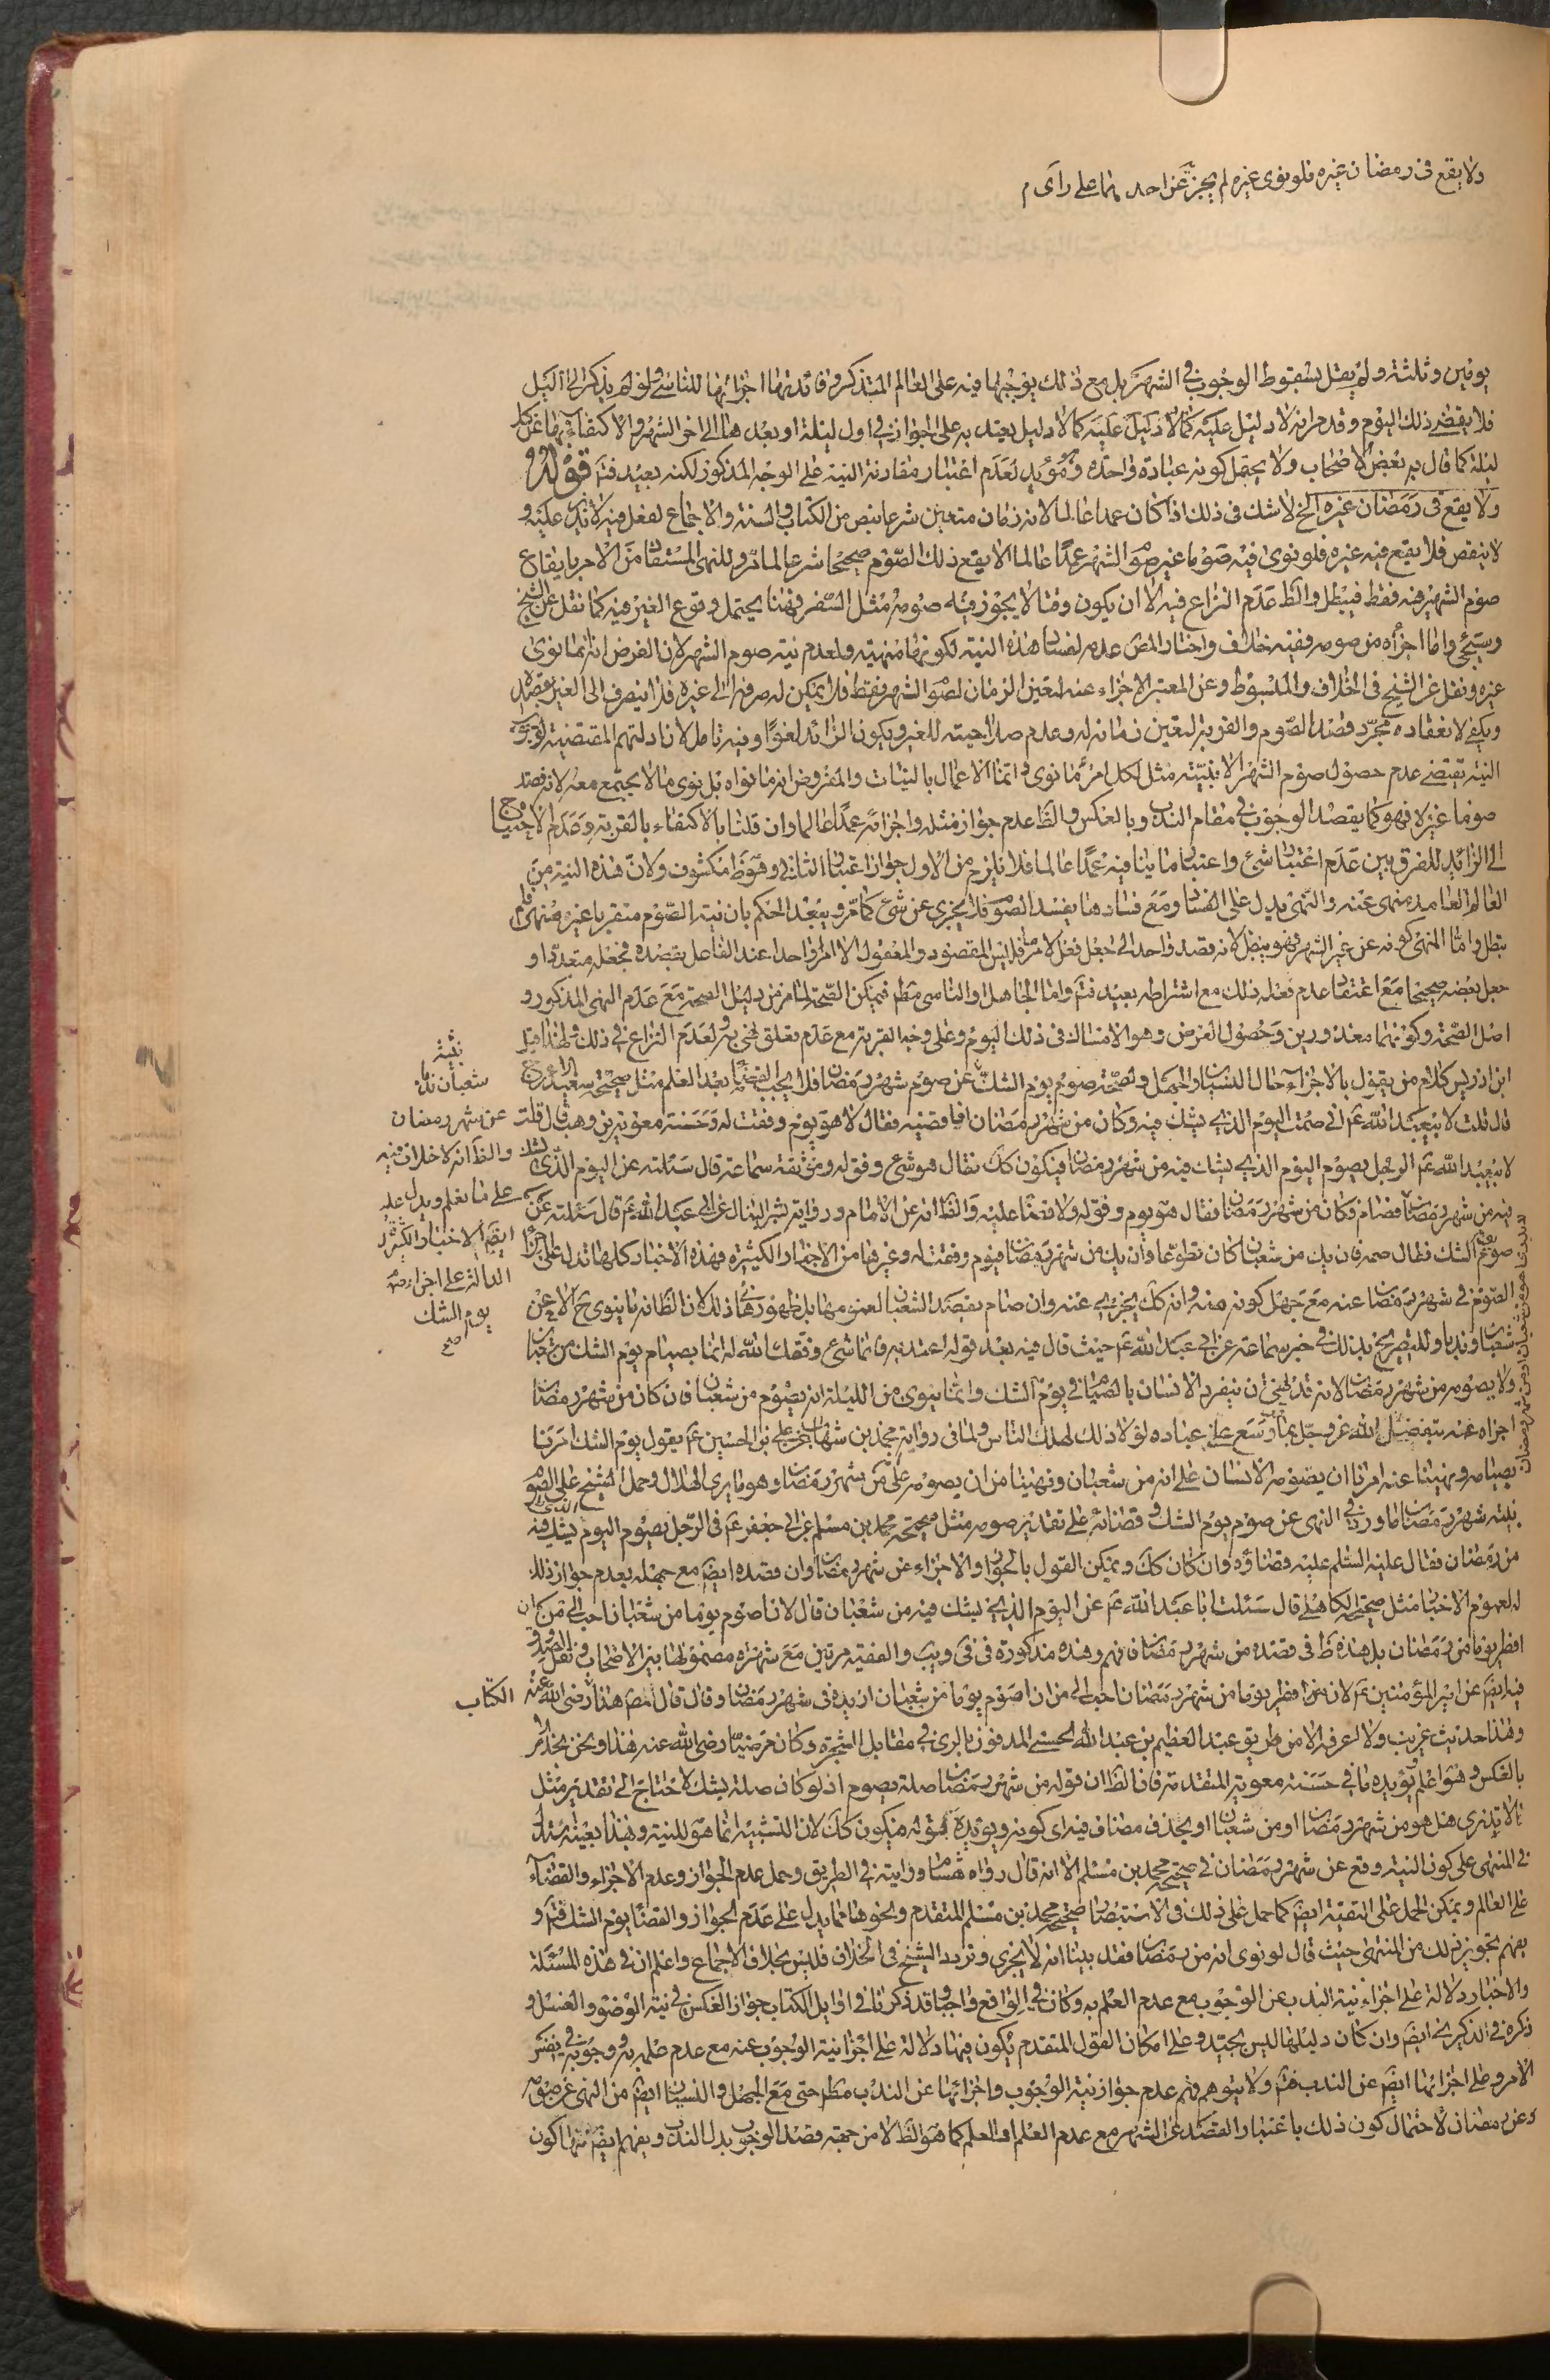 ولا يقع فى رمضان غيره فلو نوى غيره لم يجز عن احدهما على رأى م
يومين وثلثة ولم يقل بسقوط الوجوب فى الشهر بل مع ذلك يوجبها فيه على العالم المتذكر وفائدتها اجزائها للناسى ولو لم يذكر الى الليل
فلا يقضى ذلك اليوم وقد مر انه لا دليل عليه كما لا دليل يعتد به على الجواز فى اول ليلة او بعدها الى اخر الشهر والاكتفاء بها عن كل
ليلة كما قال به بعض الاصحاب ولا يحتمل كونه عبادة واحدة ومؤيد لعدم اعتبار مقارنة النية على الوجه المذكور لكنه بعيد فتأمل قوله
ولا يقع فى رمضان غيره الخ لا شك فى ذلك اذا كان عمدا عالما لانه زمان متعين شرعا بنص من الكتاب والسنة والاجماع لفعل فيه لا يزيد عليه و
لا ينقص فلا يقع فيه غيره فلو نوى فيه صوما غير صوم الشهر عمدا عالما لا يقع ذلك الصوم صحيحا شرعا لما مر وللنهى المستفاد من الامر بايقاع
صوم الشهر فيه فقط فيبطل والظ عدم النزاع فيه الا ان يكون وقتا لا يجوز فيه صومه مثل السفر فهنا يحتمل وقوع الغير فيه كما نقل عن الشيخ
وسيجئ واما اجزأه من صومه ففيه خلاف واختار المص عدمه لفساد هذه النية لكونها منهية ولعدم نية صوم الشهر لان الفرض انه انما نوى
غيره ونقل عن الشيخ فى الخلاف والمبسوط وعن المعتبر الاجزاء عنه لتعين الزمان لصوم الشهر فقط فلا يمكن له صرفه الى غيره فلا ينصرف الى الغير بقصده
ويكفى لانعقاده مجرد قصد الصوم والقربة لتعين زمانه له وعدم صلاحيته للغير ويكون الزائد لغوا وفيه تأمل لان ادلتهم المقتضية لوجوب
النية تقتضى عدم حصول صوم الشهر الا بنيته مثل لكل امرئ ما نوى وانما الاعمال بالنيات والمفروض انه ما نواه بل نوى ما لا يجتمع معه لانه قصد
صوما غيره فهو كما يقصد الوجوب فى مقام الندب وبالعكس والظ عدم جواز مثله واجزائه عمدا عالما وان قلنا بالاكتفاء بالقربة وعدم الاحتياج
الى الزائد للفرق بين عدم اعتبار شئ واعتبار ما ينافيه عمدا عالما فلا يلزم من الاول جواز اعتبار الثانى وهو ظ مكشوف ولان هذه النية من
العالم العامد منهى عنه والنهى يدل على الفساد ومع فسادها يفسد الصوم فلا يجزى عن شئ كما مر ويبعد الحكم بان نية الصوم متقربا غيره منهى
بطل واما المنهى كونه عن غير الشهر فهو يبطل لانه قصد واحد الى جعل فعل لامر ما فليس المقصود والمفعول الا امرا واحدا عند الفاعل بقصده فجعله متعددا و
جعل بعضه صحيحا مع اعتقاد عدم فعله ذلك مع اشتراطه بعيد فتم واما الجاهل او الناسى مطم فيمكن الصحة لما مر من دليل الصحة مع عدم النهى المذكور و
اصل الصحة وكونهما معذورين وحصول الغرض وهو الامساك فى ذلك اليوم وعلى وجه القربة مع عدم تعلق نهى به ولعدم النزاع فى ذلك ولهذا قيد
ابن ادريس كلام من يقول بالاجزاء حال النسيان او الجهل ولصحة صوم يوم الشك عن صوم شهر رمضان فلا يجب القضاء بعد العلم مثل صحيحة سعيد الاعرج
قال قلت لابيعبد الله عم انى صمت اليوم الذى يشك فيه وكان من شهر رمضان افاقضيه فقال لا هو يوم وفقت له وحسنة معوية بن وهب قال قلت
لابيعبد الله عم الرجل يصوم اليوم الذى يشك فيه من شهر رمضان فيكون كك فقال هو شئ وفق له وموثقة سماعة قال سئلته عن اليوم الذى يشك
فيه من شهر رمضان فصام فكان من شهر رمضان فقال هو يوم وفق له ولا قضاء عليه والظ انه عن الامام ورواية بشير النبال عن ابى عبد الله عم قال سئلته عن
صوم يوم الشك فقال صمه فان يك من شعبان كان تطوعا وان يك من شهر رمضان فيوم وفقت له وغيرها من الاخبار الكثيرة فهذه الاخبار كلها تدل على اجزاء
الصوم فى شهر رمضان عنه مع جهل كونه منه وانه كك يجزى عنه وان صام بقصد الشعبان لعمومها بل ظهورها ذلك لان الظ انه ما ينوى ح الا عن
شعبان وندبا وللتصريح بذلك فى خبر سماعة عن ابى عبد الله عم حيث قال فيه بعد قوله اعتد به فانما شئ وفقك الله له انما يصيام يوم الشك من شعبان
ولا يصومه من شهر رمضان لانه قد نهى ان ينفرد الانسان بالصيام فى يوم الشك وانما ينوى من الليلة انه يصوم من شعبان فان كان من شهر رمضان
اجزاه عنه بتفضل الله عز وجل بما وسع على عباده لولا ذلك لهلك الناس ولما فى رواية محمد بن شهاب عن على بن الحسين عم يقول يوم الشك امرنا
بصيامه ونهينا عنه امرنا ان يصومه الانسان على انه من شعبان ونهينا من ان يصومه على من شهر رمضان وهو ما يرى الهلال وحمل الشيخ على الصوم
بنيته شهر رمضان ما ورد فى النهى عن صوم يوم الشك وقضائه على تقدير صومه مثل صحيحة محمد بن مسلم عن ابى جعفر عم فى الرجل يصوم اليوم الذى يشك فيه
من رمضان فقال عليه السلم عليه قضاؤه وان كان كك ويمكن القول بالجواز والاجزاء عن شهر رمضان وان قصده ايضم مع جهله بعدم جواز ذلك
له لعموم الاخبار مثل صحيحة الكاهلى قال سئلت ابا عبد الله عم عن اليوم الذى يشك فيه من شعبان قال لان اصوم يوما من شعبان احب الى من ان
افطر يوما من رمضان بل هذه ظ فى قصده من شهر رمضان فافهم وهذه مذكورة فى فى ويب والفقيه مرتين مع شهرة مضمونها بين الاصحاب ونقل الصدوق
فيه ايضم عن امير المؤمنين عم لان افطر يوما من شهر رمضان احب الى من ان اصوم يوما من شعبان ازيده فى شهر رمضان وقال قال مص هذا الكتاب رضى الله عنه
وهذا حديث غريب ولا اعرفه الا من طريق عبد العظيم بن عبد الله الحسنى المدفون بالرى فى مقابل الشجرة وكان مرضيا رضى الله عنه هذا ونحن نجد الامر
بالعكس وهو اعلم ويؤيده ما فى حسنة معوية المتقدمة فان الظ ان قوله من شهر رمضان صلة يصوم اذ لو كان صلة يشك لاحتاج الى تقدير مثل
ما لا يدرى هل هو من شهر رمضان او من شعبان او بحذف مضاف فيه اى كونه ويؤيده قوله فيكون كك لان التشبيه انما هو للنية وبهذا بعينه استدل
فى المنتهى على كون النية وقع عن شهر رمضان فى صحيحة محمد بن مسلم الا انه قال رواه هشام وروايته فى الطريق وحمل عدم الجواز وعدم الاجزاء والقضاء
على العالم ويمكن الحمل على التقية ايضم كما حمل على ذلك فى الاستبصار صحيحة محمد بن مسلم المتقدم ونحوها مما يدل على عدم الجواز والقضاء يوم الشك فتم و
يفهم تجويز ذلك من المنتهى حيث قال لو نوى انه من رمضان فقد بينا انه لا يجزى وتردد الشيخ فى الخلاف فليس بخلاف الاجماع واعلم ان فى هذه المسئلة
والاخبار دلالة على اجزاء نية الندب عن الوجوب مع عدم العلم به وكان فى الواقع واجبا وقد ذكرنا فى اوايل الكتاب جواز العكس فى نية الوضوء والغسل و
ذكره فى الذكرى ايضم وان كان دليلها ليس بجيد وعلى امكان القول المتقدم يكون فيها دلالة على اجزا نية الوجوب عنه مع عدم علمه به ووجوبه فى نفس
الامر وعلى اجزائها ايضم عن الندب فتم ولا يتوهم فهم عدم جواز نية الوجوب واجزائها عن الندب مطم حتى مع الجهل والنسيان ايضم من النهى عن صومه
عن رمضان لاحتمال كون ذلك باعتبار القصد عن الشهر مع عدم العلم او العلم كما هو الظ لا من جهة قصد الوجوب بدل الندب ويفهم ايضم منها كون
بنية
شعبان ندبا
عن شهر رمضان
والظ انه لا خلاف فيه
على ما نعلم ويدل عليه
ايضم الاخبار الكثيرة
الدالة على اجزاء صوم
يوم الشك
صح